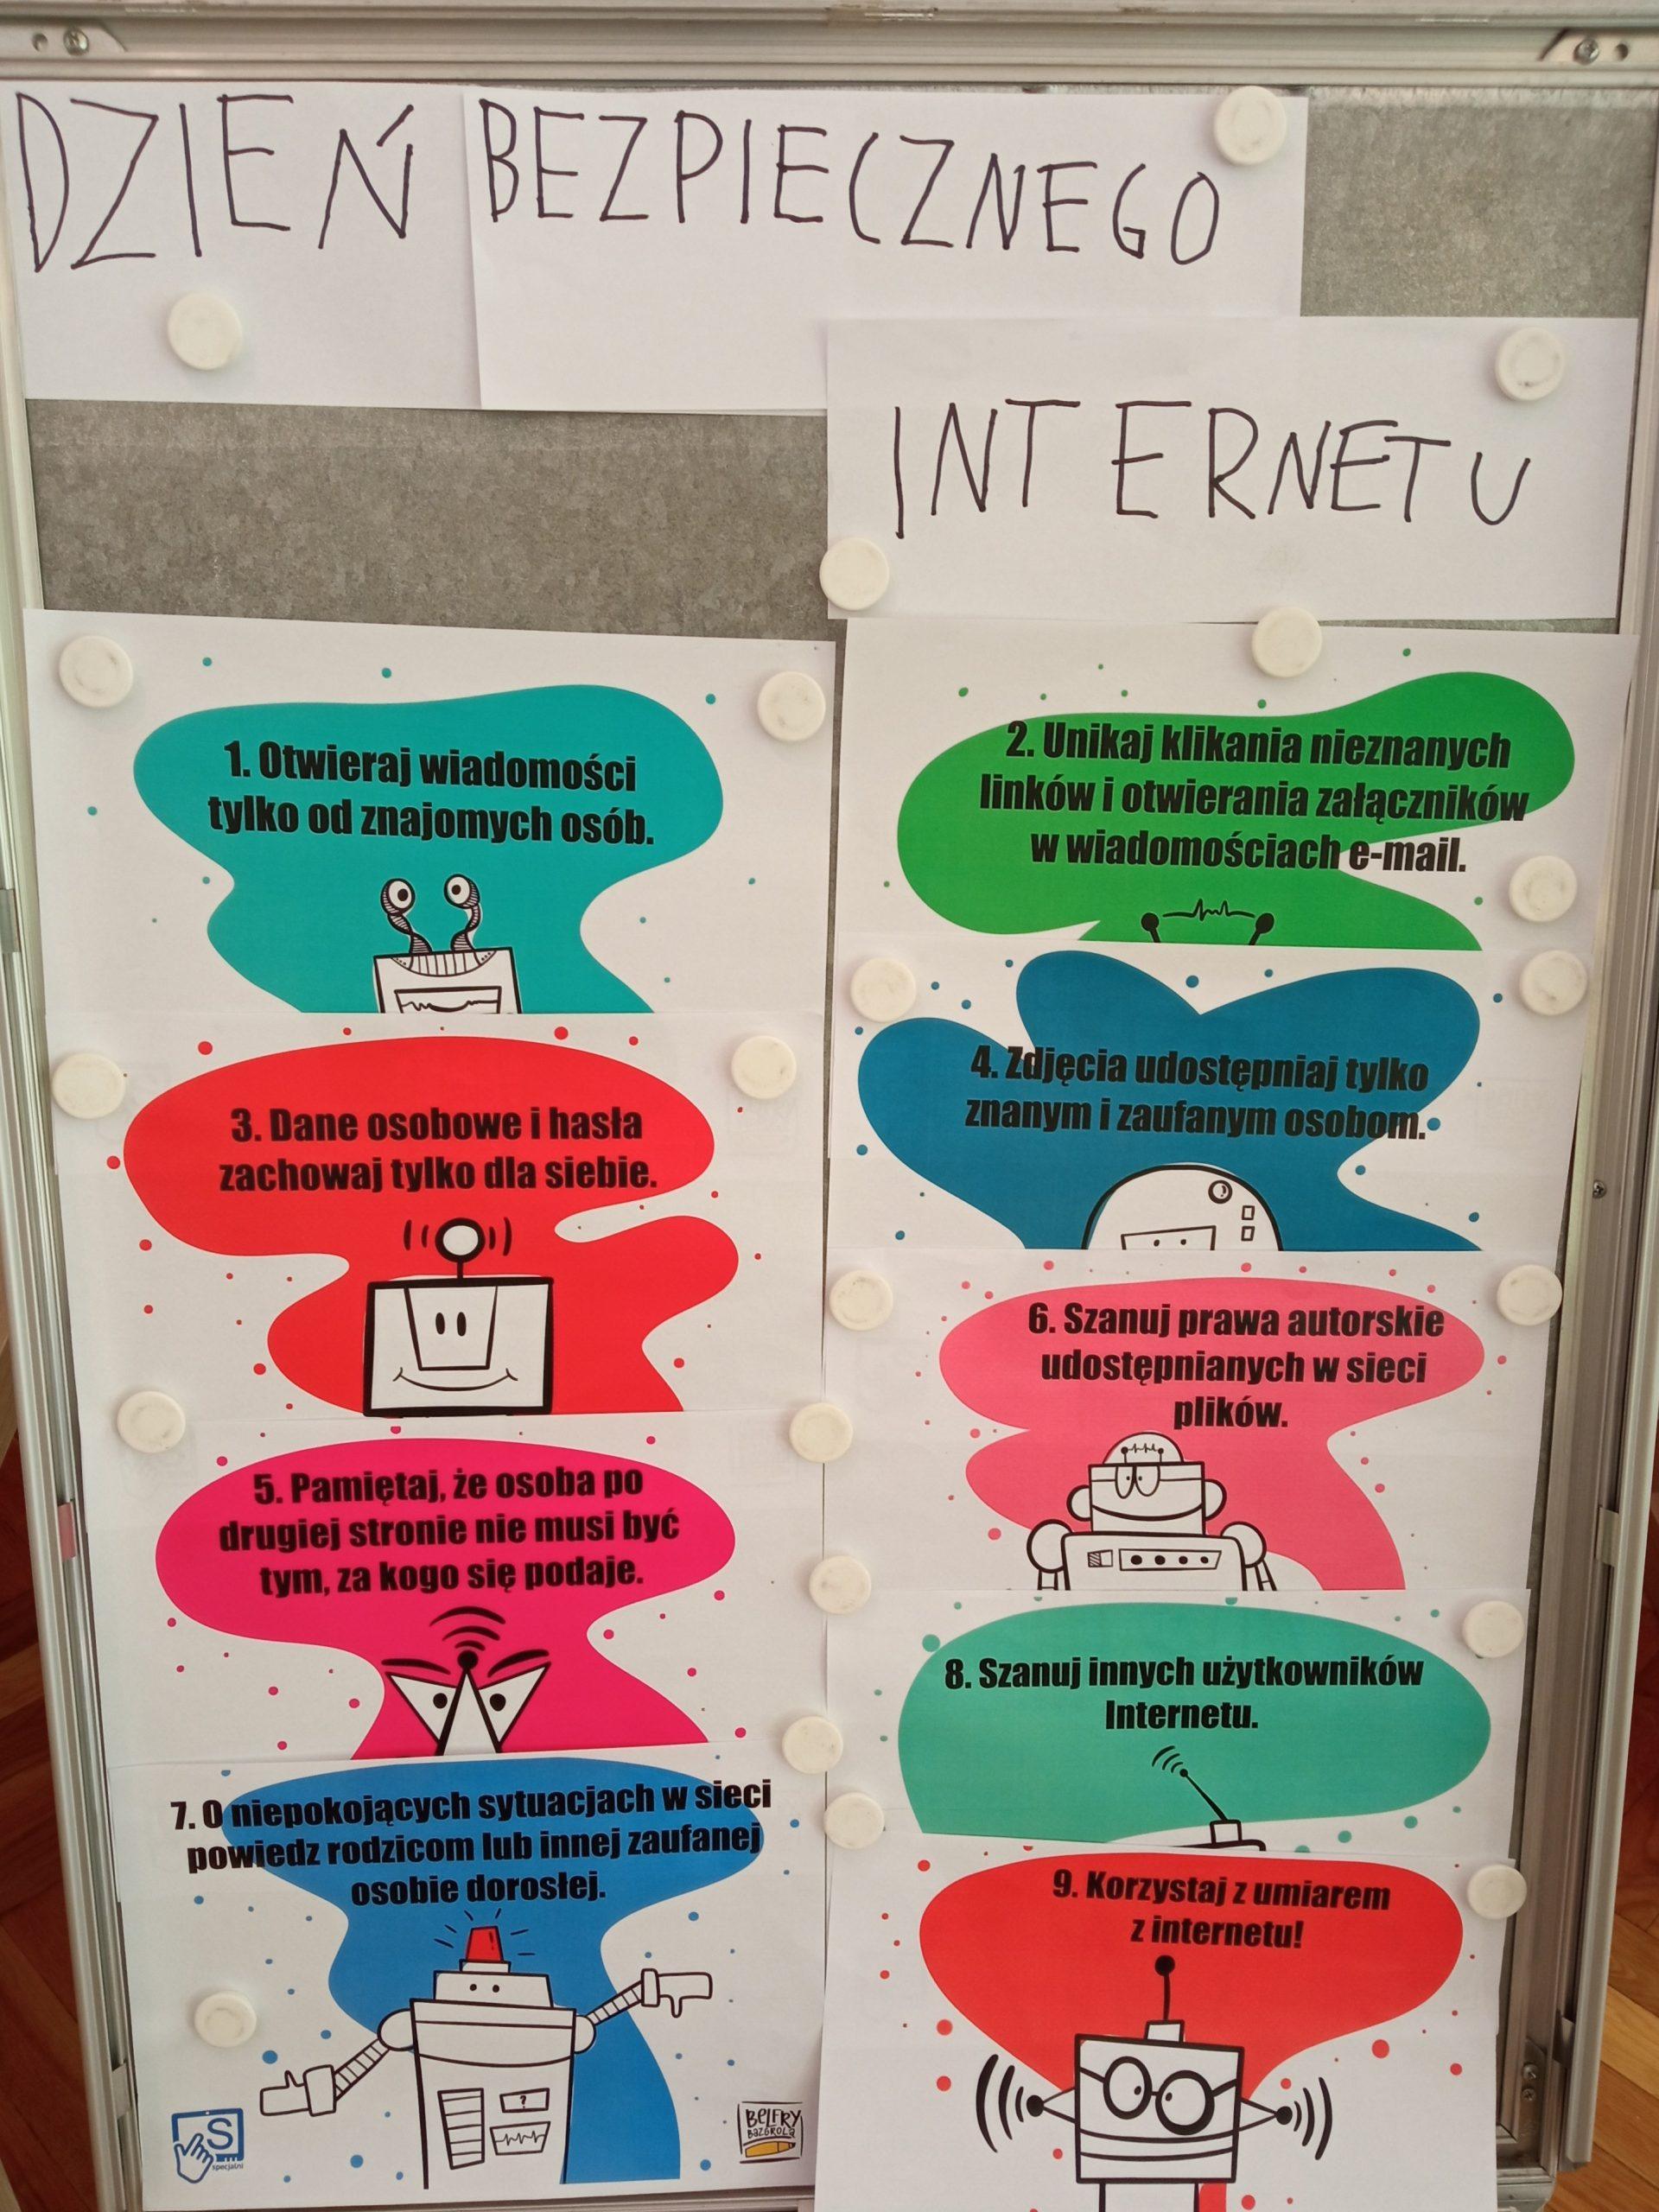 DZIEŃ BEZPIECZNEGO
INTERNETU
1. Otwieraj wiadomości
tylko od znajomych osób.
2. Unikaj klikania nieznanych
linków i otwierania załączników
w wiadomościach e-mail.
3. Dane osobowe i hasła
zachowaj tylko dla siebie.
4. Zdjęcia udostępniaj tylko
znanym i zaufanym osobom.
5. Pamiętaj, że osoba po
drugiej stronie nie musi być
tym, za kogo się podaje.
6. Szanuj prawa autorskie
udostępnianych w sieci
plików.
7. O niepokojących sytuacjach w sieci
powiedz rodzicom lub innej zaufanej
osobie dorosłej.
?
S
specjalni
BELFRY
BAZGROLĄ
8. Szanuj innych użytkowników
Internetu.
9. Korzystaj z umiarem
z internetu!